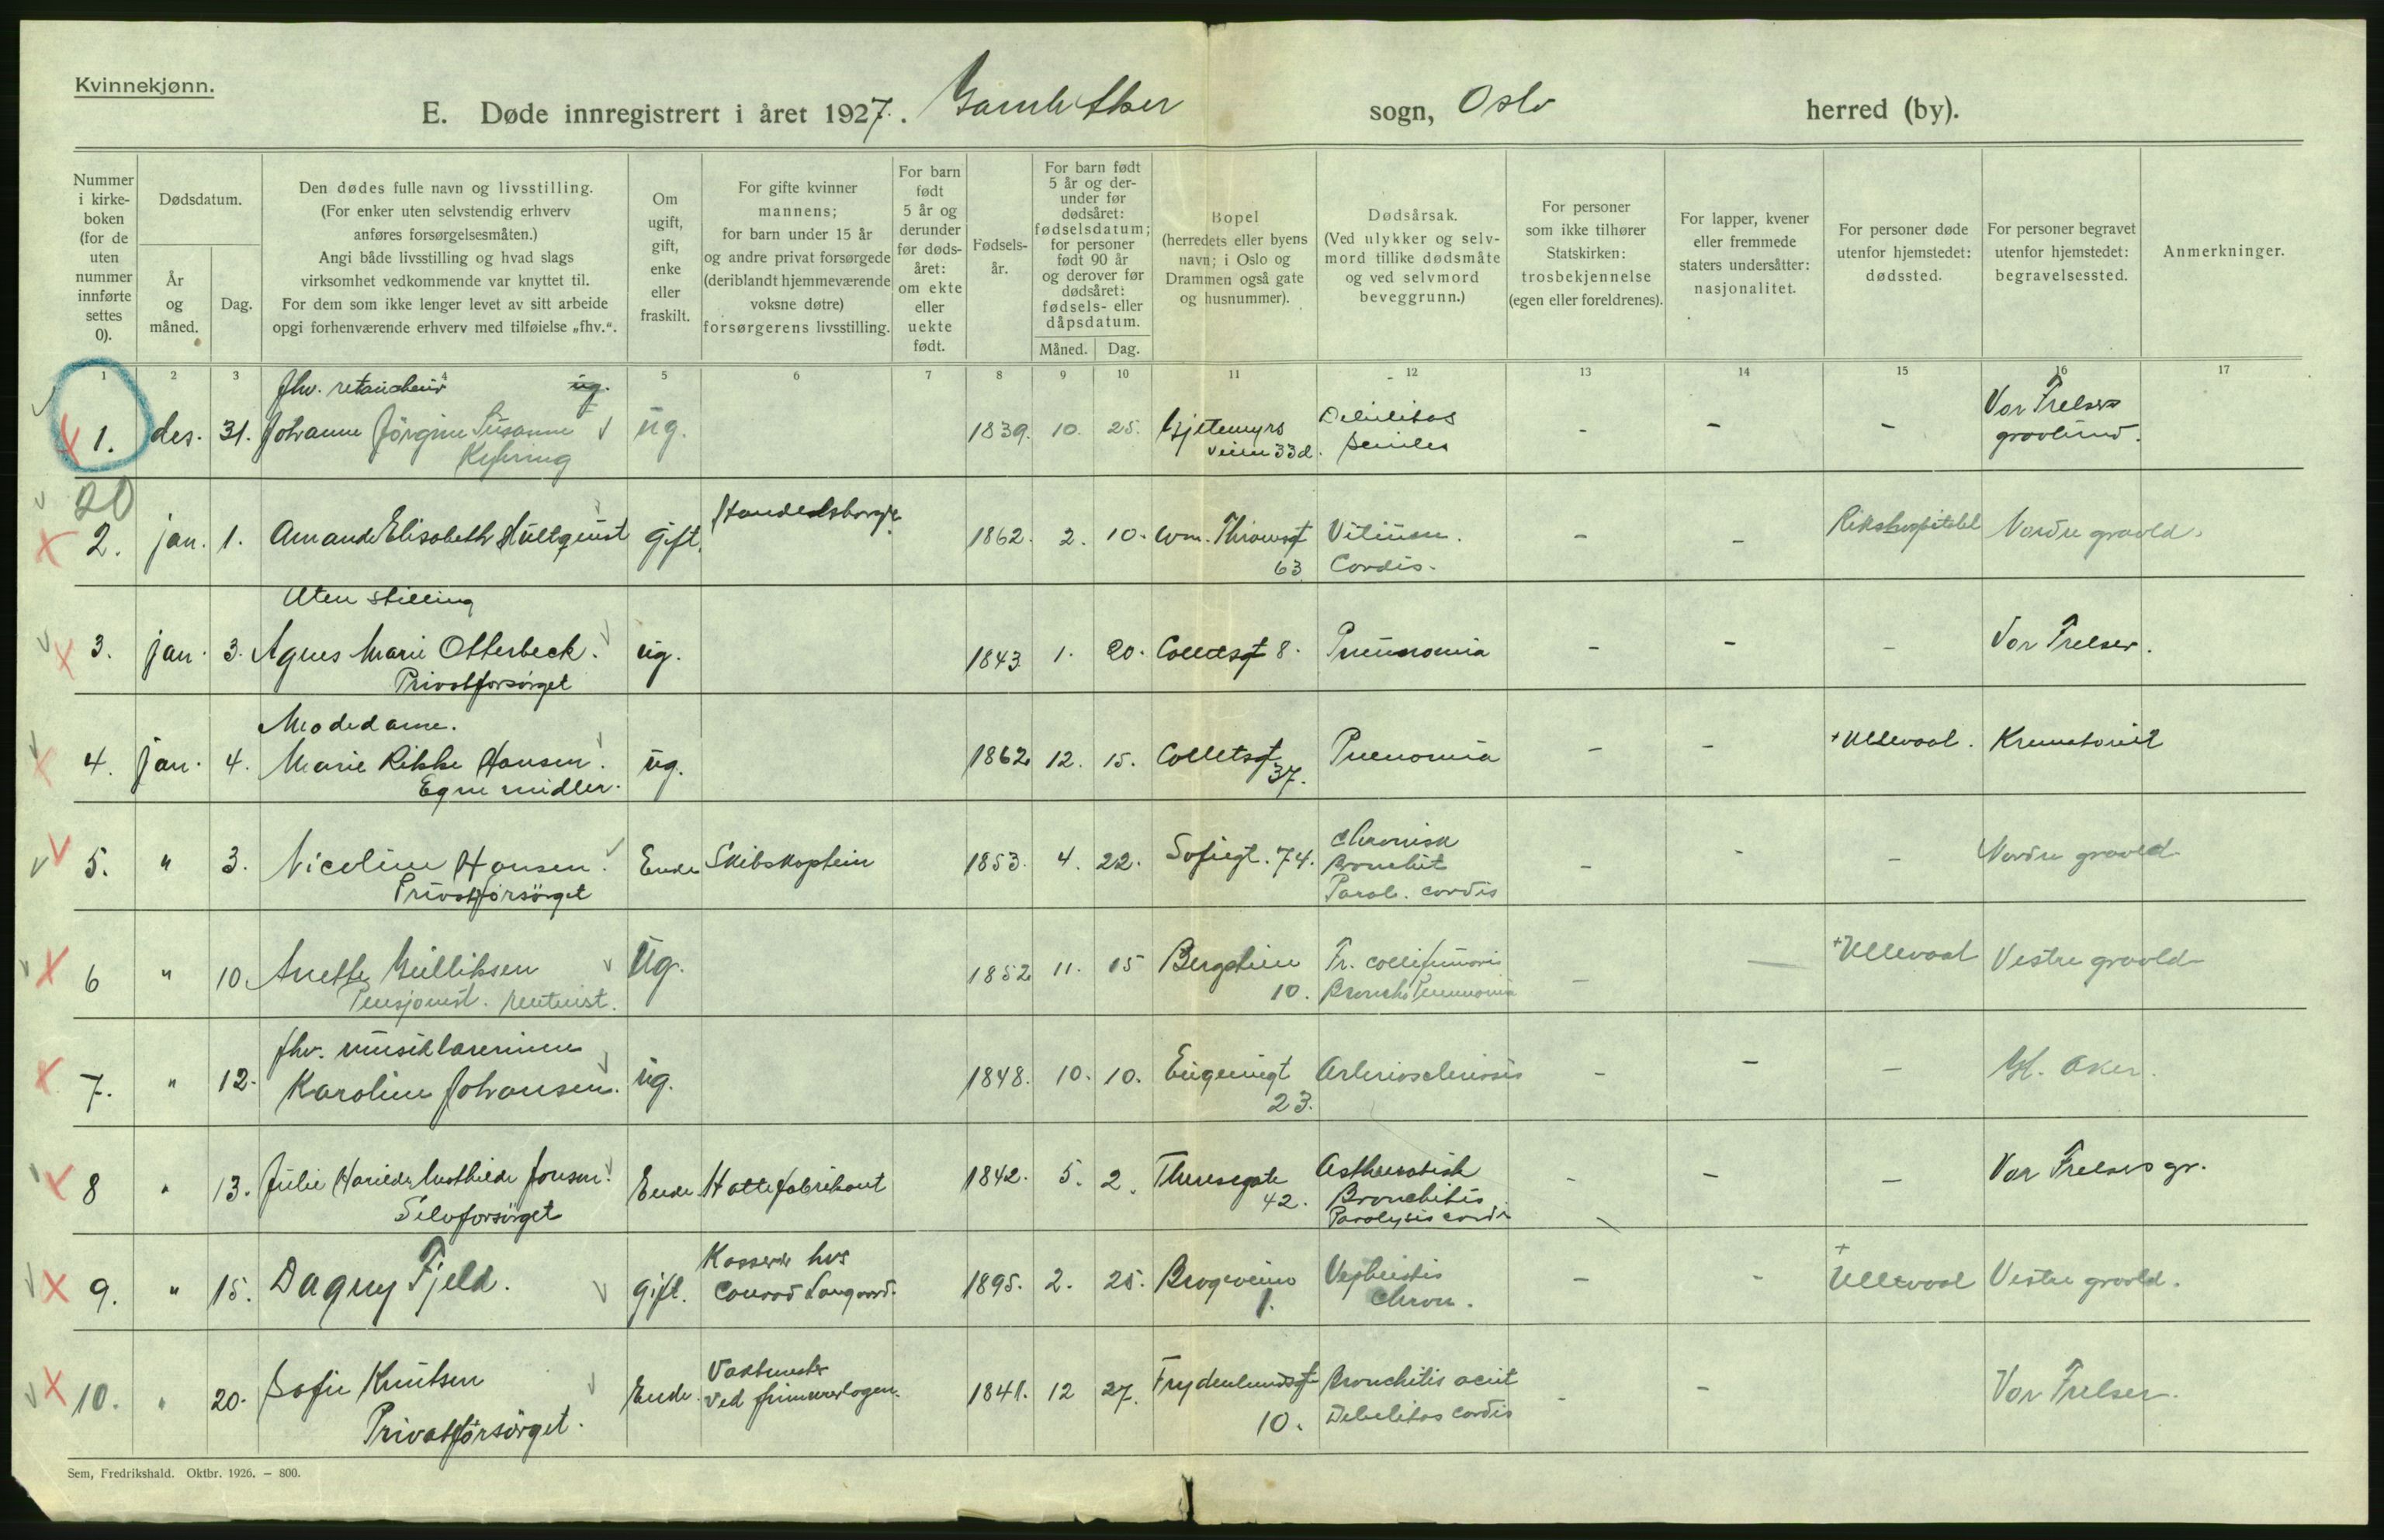 Kvinnekjønn.
E. Døde innregistrert i året 1927. Gamle Aker sogn, Oslo herred (by).
Nummer i kirke-boken (for de uten nummer innførte settes 0).
Dødsdatum.
År og måned.
Dag.
Den dødes fulle navn og livsstilling.
(For enker uten selvstendig erhverv anføres forsørgelsesmåten.)
Angi både livsstilling og hvad slags virksomhet vedkommende var knyttet til.
For dem som ikke lenger levet av sitt arbeide opgi forhenværende erhverv med tilføielse „fhv.“.
Om ugift, gift, enke eller fraskilt.
For gifte kvinner mannens; for barn under 15 år og andre privat forsørgede (deriblandt hjemmeværende voksne døtre) forsørgerens livsstilling.
For barn født 5 år og derunder før døds-året: om ekte eller uekte født.
Fødsels-år.
For barn født 5 år og der-under før dødsåret: fødselsdatum; for personer født 90 år og derover før dødsåret: fødsels- eller dåpsdatum.
Måned.
Dag.
Bopel (herredets eller byens navn; i Oslo og Drammen også gate og husnummer).
Dødsårsak. (Ved ulykker og selv-mord tillike dødsmåte og ved selvmord beveggrunn.)
For personer som ikke tilhører Statskirken: trosbekjennelse (egen eller foreldrenes).
For lapper, kvener eller fremmede staters undersåtter: nasjonalitet.
For personer døde utenfor hjemstedet: dødssted.
For personer begravet utenfor hjemstedet: begravelsessted.
Anmerkninger.
1 2 3 4 5 6 7 8 9 10 11 12 13 14 15 16 17
fhv. retoucheur ug.
1. des. 31. Johanne Jörgine Susanne ug. 1839. 10. 25. Gjetemyrs Debilitas - - - Vor Frelsers
veien 33d. senilis gravlund.
20
2. jan. 1. Amanda Elisabeth Hullquist Gift. Handelsborger 1862. 2. 10. Wm. Thranesgt Vitium - - Rikshospitalet Nordre gravld.
63 Cordis.
Uten stilling
3. jan. 3. Agnes Marie Otterbeck. ug. 1843 1. 20. Colletsgt 8. Pneumonia - - - Vor Frelser.
Privatforsörget
Modedame.
4. jan. 4. Marie Rikke Hansen. ug. 1862 12. 15. Colletsgt Pnenomia - - + Ullevaal. Krematoriet
Egne midler. 37.
5. " 3. Nicoline Hansen. Enke Skibskaptein 1853. 4. 22. Sofiegt. 74. Chronisk - - - Nordre gravld.
Privatforsörget Bronchit
Paral. cordis
6 " 10. Anette Gulliksen Ug. 1852 11. 15 Bergslien Fr. colli femoris - - + Ullevaal Vestre gravld
Pensjonist. rentenist. 10. Broncho Pneumonia
fhv. musiklærerinne
7. " 12. Karoline Johansen. ug. 1848. 10. 10. Eugeniegt Arteriosclerosis - - - Gl. Aker.
23.
8 " 13. Julie Mathilde Jonsen. Enke Hattefabrikant 1842. 5. 2. Theresegate Asthmatisk - - - Vor Frelsers gr.
Selvforsörget 42. Bronchitis
Paralysis cordis
Kasserer hos
9. " 15. Dagny Fjeld. Gift. Conrad Langaard. 1895. 2. 25. Brageveien Nephritis - - + Ullevaal Vestre gravld.
1. chron.
Vaktmester
10. " 20. Sofie Knutsen Enke. ved frimurerlogen. 1841. 12 27. Frydenlundsgt Bronchitis acut - - Vor Frelser.
Privatforsörget. 10. Debilitas cordis
Sem, Fredrikshald. Oktbr. 1926. – 800.